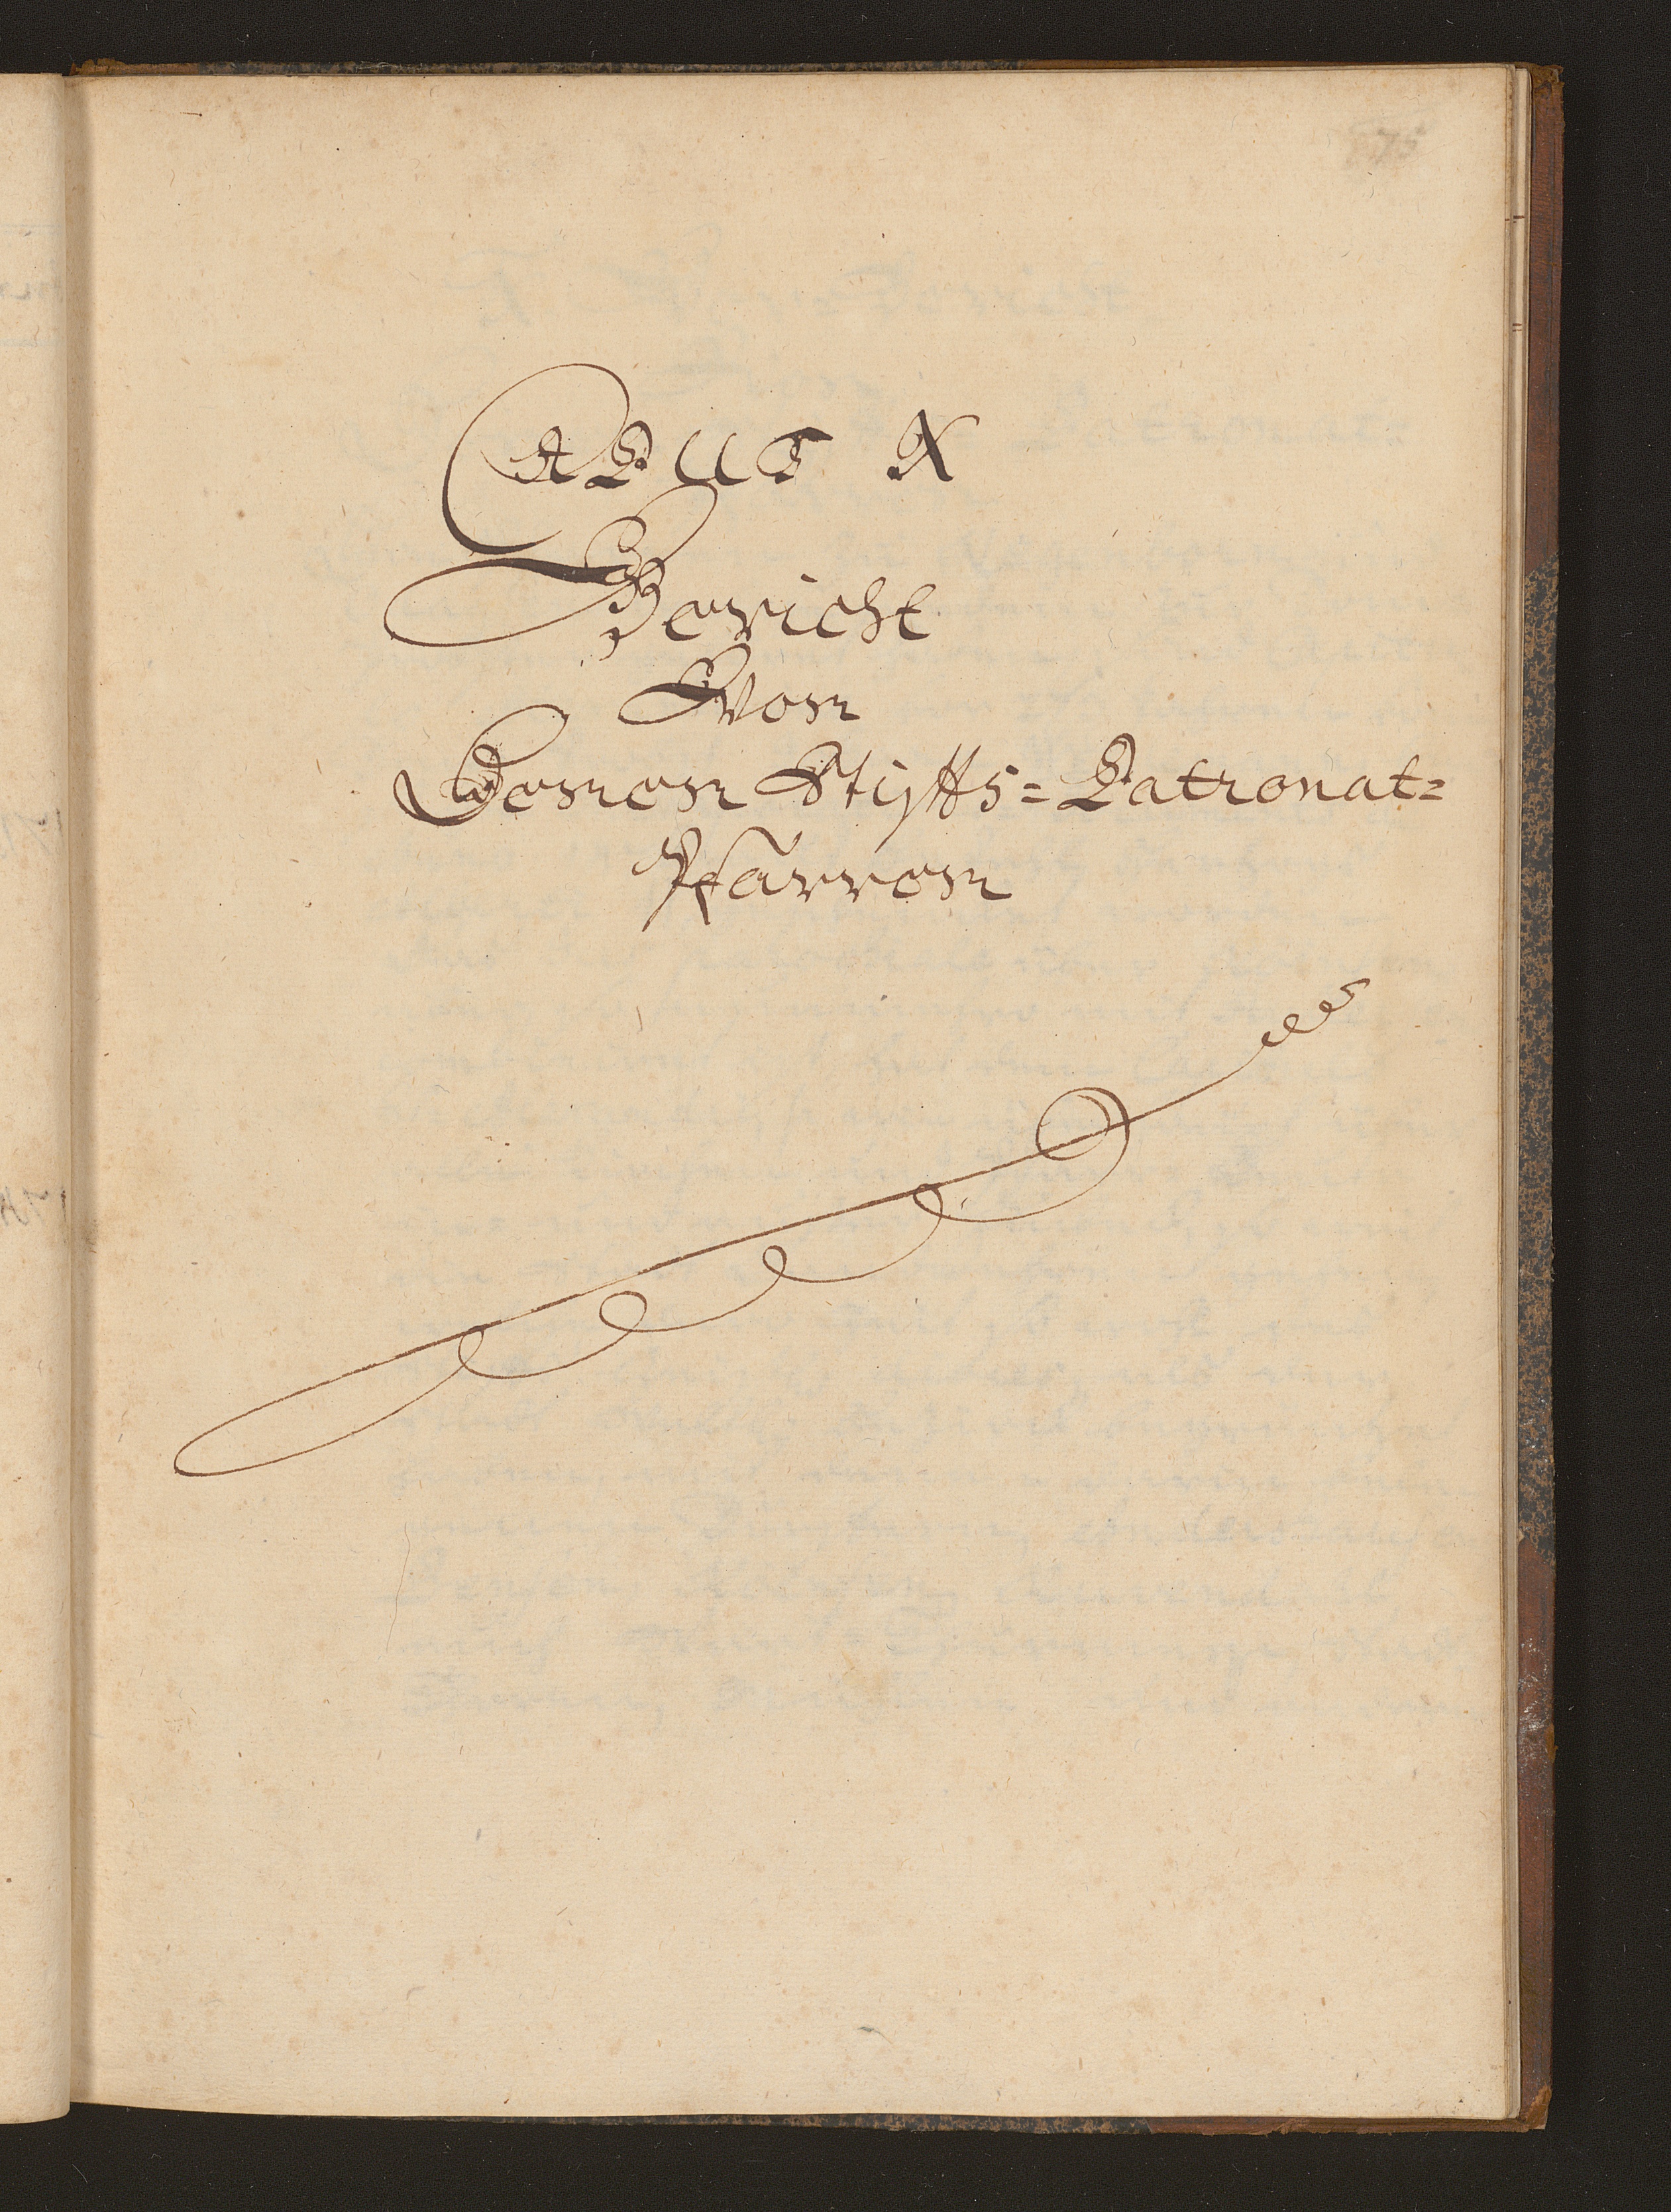 CAPUT X
Bericht
Von
Denen Stiffts=Patronat=
Pfarren